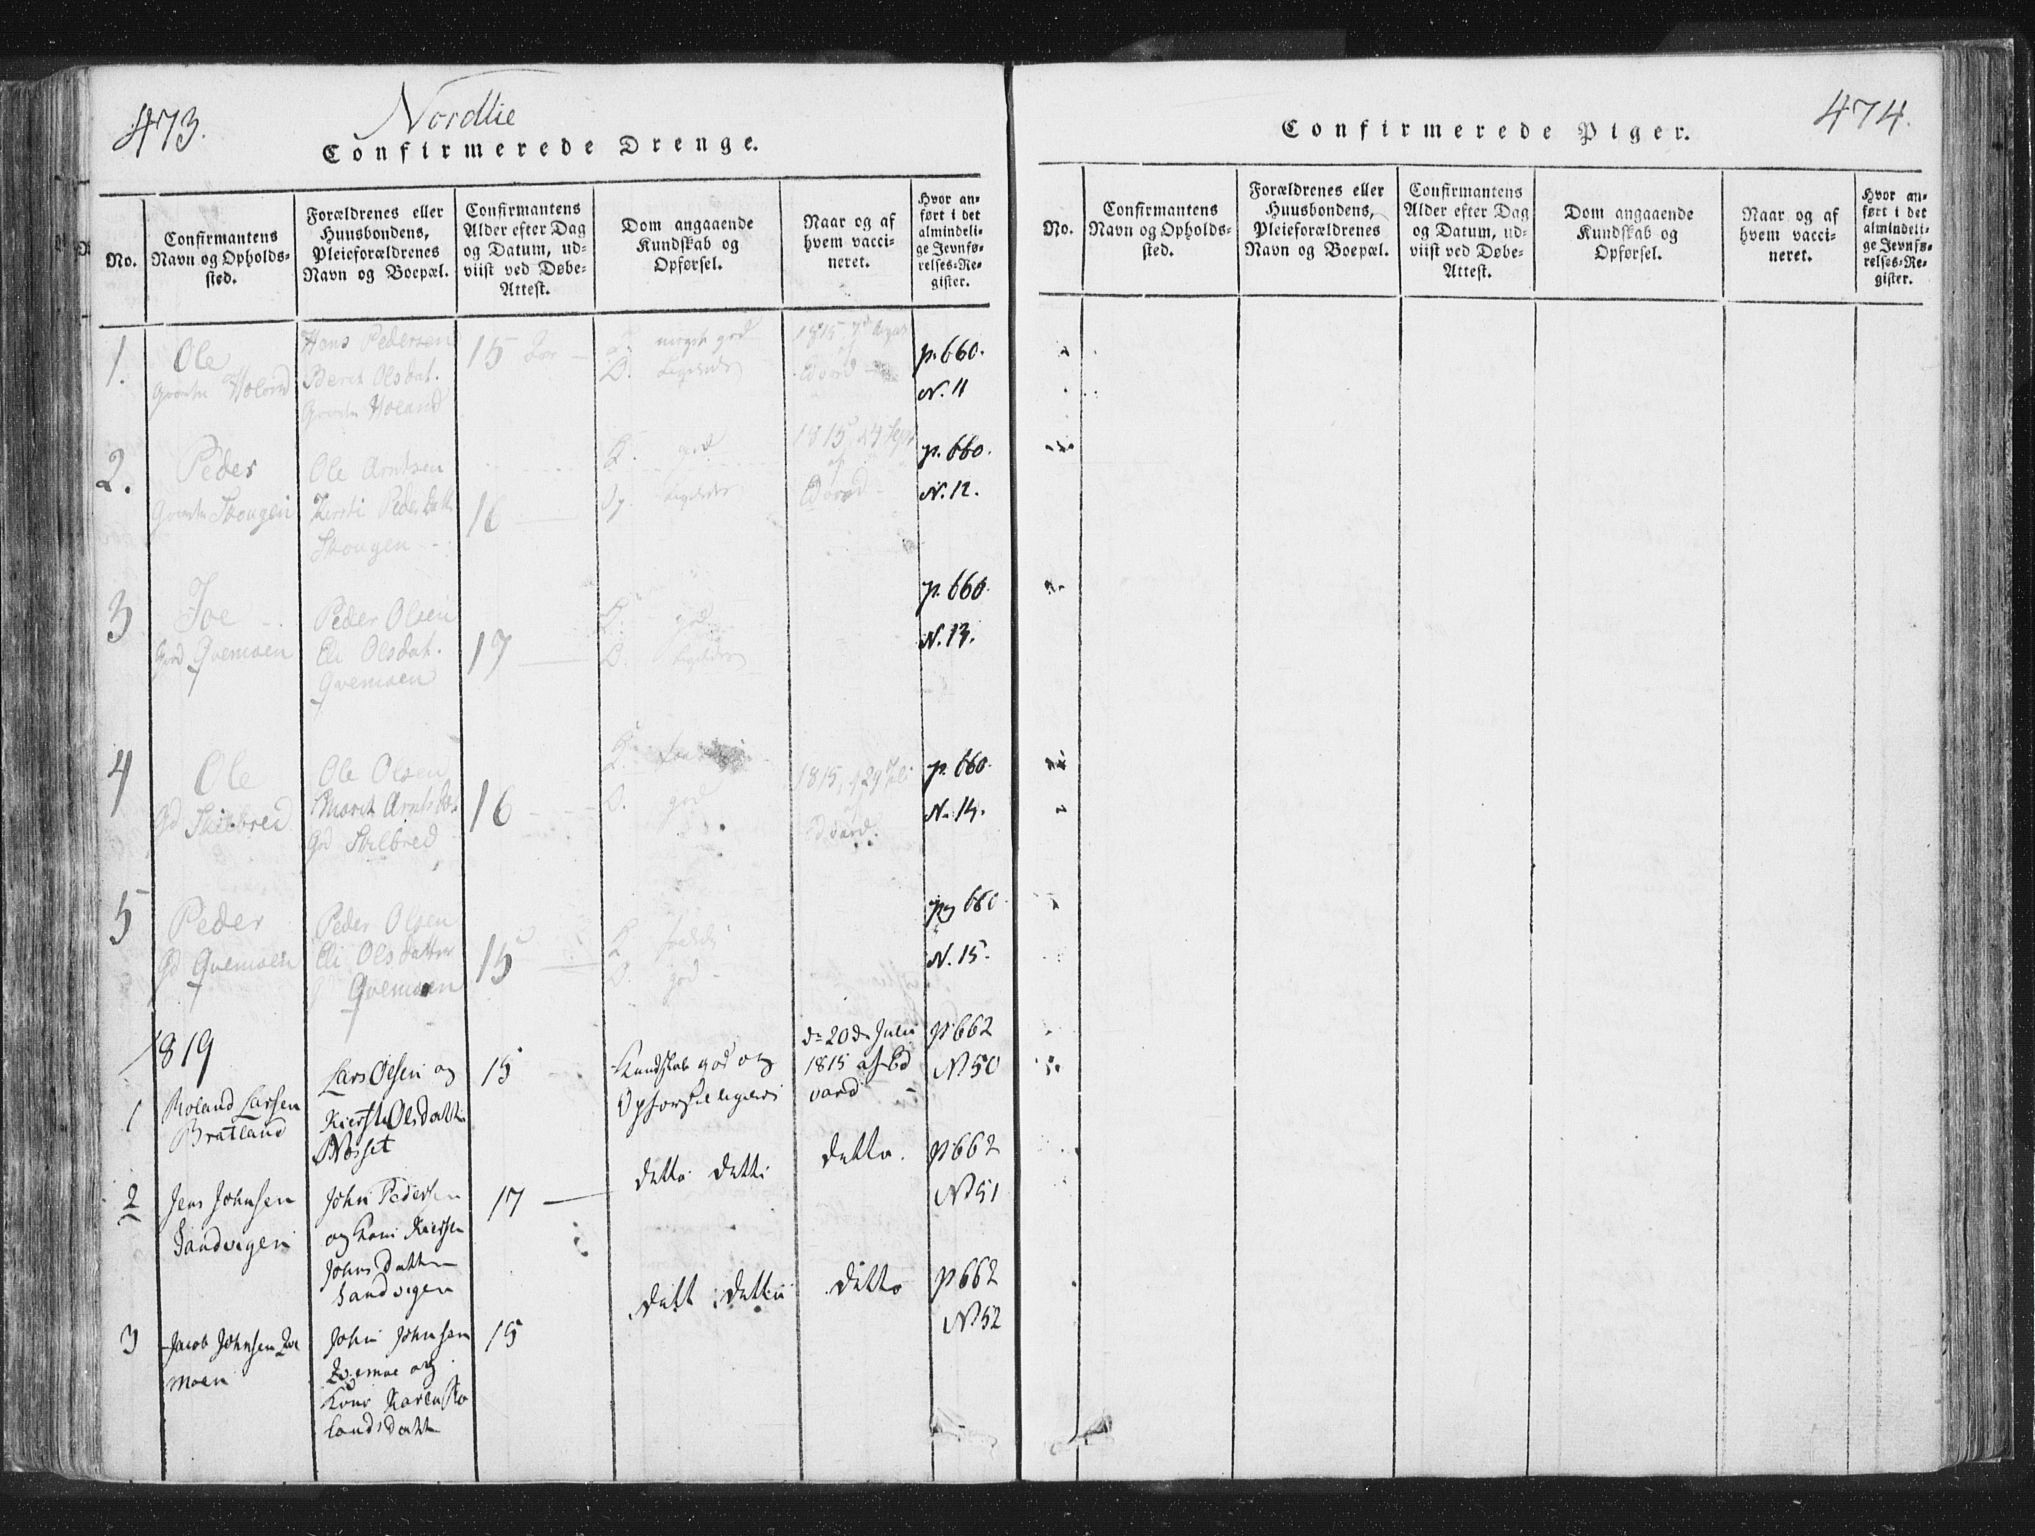 473.
Nordlie
Confirmerede Drenge.
No.
Confirmantens Navn og Opholds-sted.
Forældrenes eller Huusbondens, Pleieforældrenes Navn og Boepæl.
Confirmantens Alder efter Dag og Datum, ud-viist ved Døbe-Attest.
Dom angaaende Kundskab og Opførsel.
Naar og af hvem vacci-neret.
Hvor an-ført i det almindeli-ge Jevnfø-relses-Re-gister.
1.
Ole
Holand
Hans Pedersen
Beret Olsdat.
Holand
15
meget god
1815
p. 660.
N. 11
2.
Peder
Skougen
Ole Arntsen
Kersti Pedersdatt
Skougen
16
god
1815, 24 Sept
p. 660.
N. 12.
3
Joe
Gd Qvemoen
Peder Olsen
Eli Olsdat.
Qvemoen
17
god
p. 660.
N. 13.
4
Ole
Gd Skilbred
Ole Olsen
Marit Arntsda.
Gd Skilbred
16
god
1815, 29 Juli
Edvard.
p. 660.
N. 14.
5
Peder
Gd Qvemoen
Peder Olsen
Eli Olsdatter
Qvemoen
15
god
pag 660
N. 15.
1819
1
Roland Larsen
Bratland
Lars Olsen og
Kirste Olsdatter
Nosset
15
Kundskab god og
Opførsel ligeledes
d. 20de Julii
1815 af Ed
vard
p. 662
No 50
2
Jens Johnsen
Sandvigen
John Pedersen
og Kone Kiersten
Johnsdatter
Sandvigen
17
detto detto
detto.
p. 662
No 51
3
Jacob Johnsen Qve
moen
John Johnsen
Qvemoe og
Kone Karen Ro
landsdatt
15
dett detto
ditto
p 662
No 52
474.
Confirmerede Piger.
No.
Confirmantens Navn og Opholds-sted.
Forældrenes eller Huusbondens, Pleieforældrenes Navn og Boepæl.
Confirmantens Alder efter Dag og Datum, ud-viist ved Døbe-Attest.
Dom angaaende Kundskab og Opførsel.
Naar og af hvem vacci-neret.
Hvor an-ført i det almindeli-ge Jevnfø-relses-Re-gister.